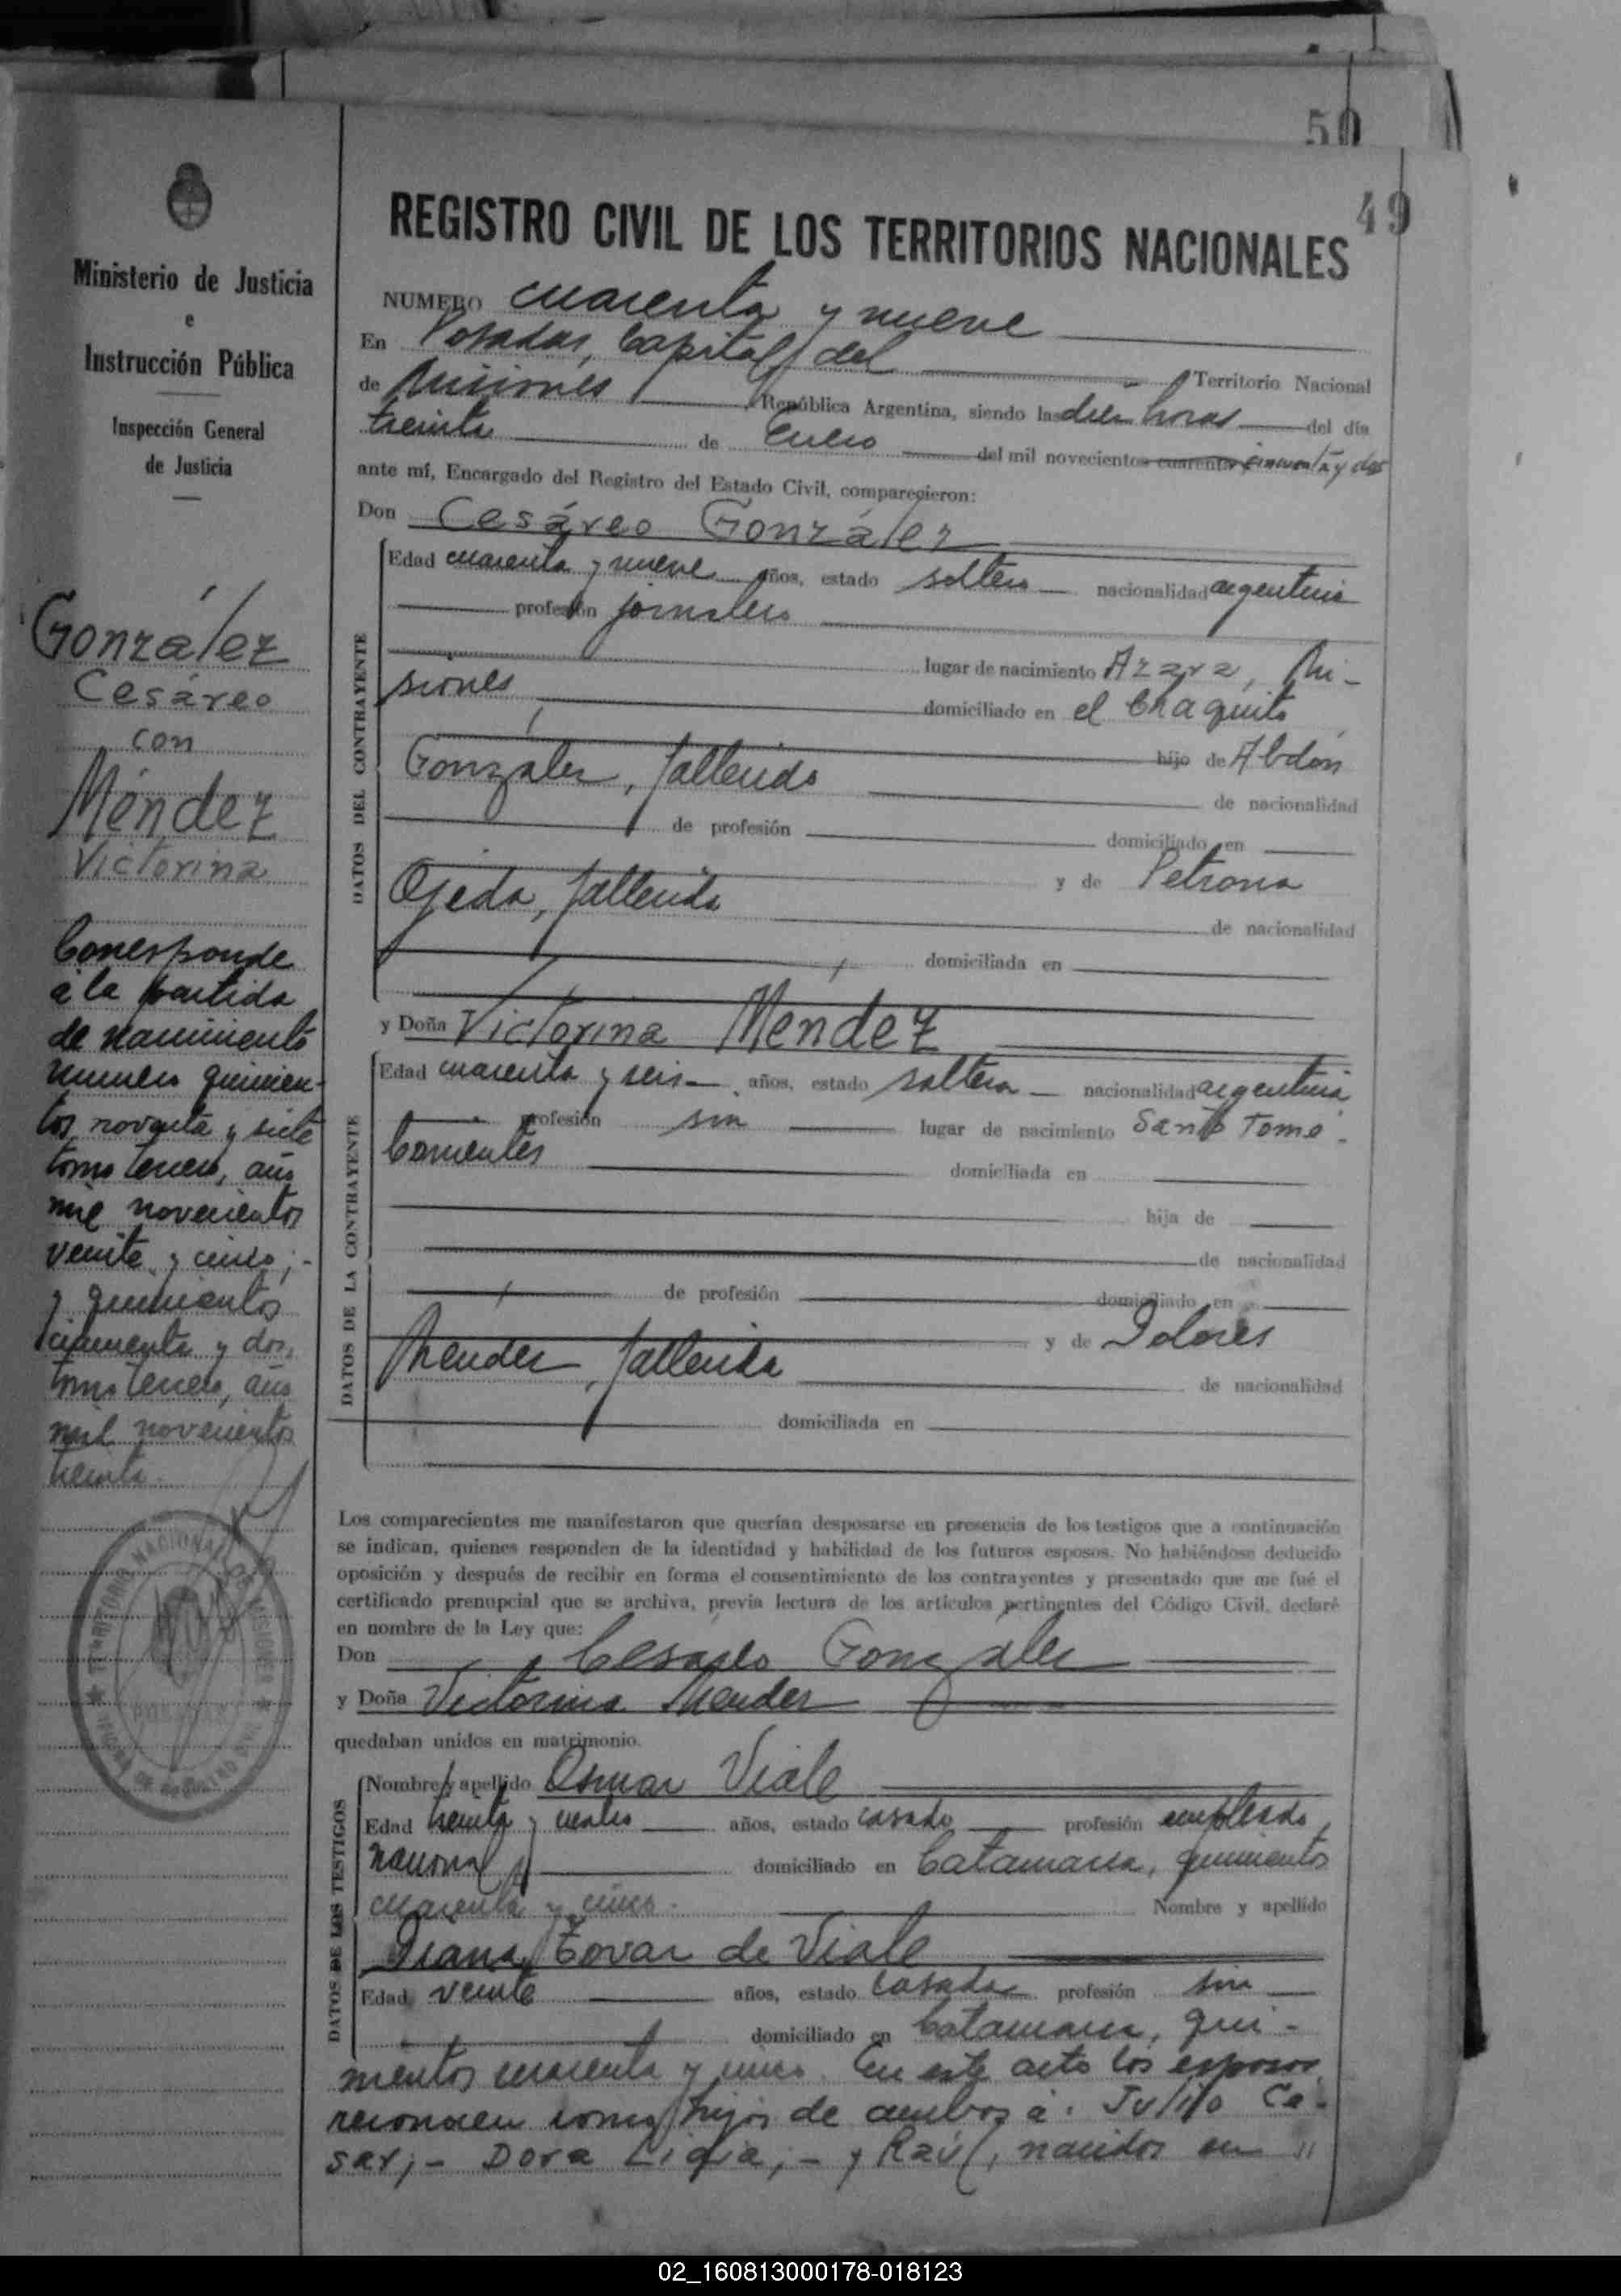 50
49
Ministerio de Justicia
e
Instrucción Pública
Inspección General
de Justicia
González
Cesáreo
con
Méndez
Victorina
Corresponde
a la partida
de nacimiento
numero quinien-
tos noventa y siete
tomo tercero, año
mil novecientos
veinte y cinco;-
y quinientos
cincuenta y dos,
tomo tercero, año
mil novecientos
treinta.
TERRITORIO NACIONAL DE MISIONES
POSADAS
OFICINA DE REGISTRO CIVIL
REGISTRO CIVIL DE LOS TERRITORIOS NACIONALES
NUMERO cuarenta y nueve
En Posadas, Capital del Territorio Nacional
de Misiones República Argentina, siendo las diez horas del día
treinta de Enero del mil novecientos cuarenta cincuenta y dos
ante mí, Encargado del Registro del Estado Civil, comparecieron:
Don Cesáreo González
DATOS DEL CONTRAYENTE
Edad cuarenta y nueve años, estado soltero nacionalidad argentina
profesión jornalero
lugar de nacimiento Azara, Mi-
siones domiciliado en el Chaquito
hijo de Abdón
González, fallecido de nacionalidad
de profesión domiciliado en
y de Petrona
Ojeda, fallecida de nacionalidad
domiciliada en
y Doña Victorina Mendez
DATOS DE LA CONTRAYENTE
Edad cuarenta y seis años, estado soltera nacionalidad argentina
profesión sin lugar de nacimiento Santo Tomé-
Corrientes domiciliada en
hija de
de nacionalidad
de profesión domiciliado en
y de Dolores
Mendez, fallecida de nacionalidad
domiciliada en
Los comparecientes me manifestaron que querían desposarse en presencia de los testigos que a continuación
se indican, quienes responden de la identidad y habilidad de los futuros esposos. No habiéndose deducido
oposición y después de recibir en forma el consentimiento de los contrayentes y presentado que me fué el
certificado prenupcial que se archiva, previa lectura de los artículos pertinentes del Código Civil, declaré
en nombre de la Ley que:
Don Cesareo Gonzalez
y Doña Victorina Mendez
quedaban unidos en matrimonio.
DATOS DE LOS TESTIGOS
Nombre y apellido Osmar Viale
Edad treinta y cuatro años, estado casado profesión empleado
nacional domiciliado en Catamarca, quinientos
cuarenta y cinco. Nombre y apellido
Diana Tovar de Viale
Edad veinte años, estado casada profesión sin
domiciliado en Catamarca, qui-
nientos cuarenta y cinco. En este acto los esposos
reconocen como hijos de ambos a: Julio Ce-
sar;- Dora Ligia;- y Raúl, nacidos en //
02_160813000178-018123